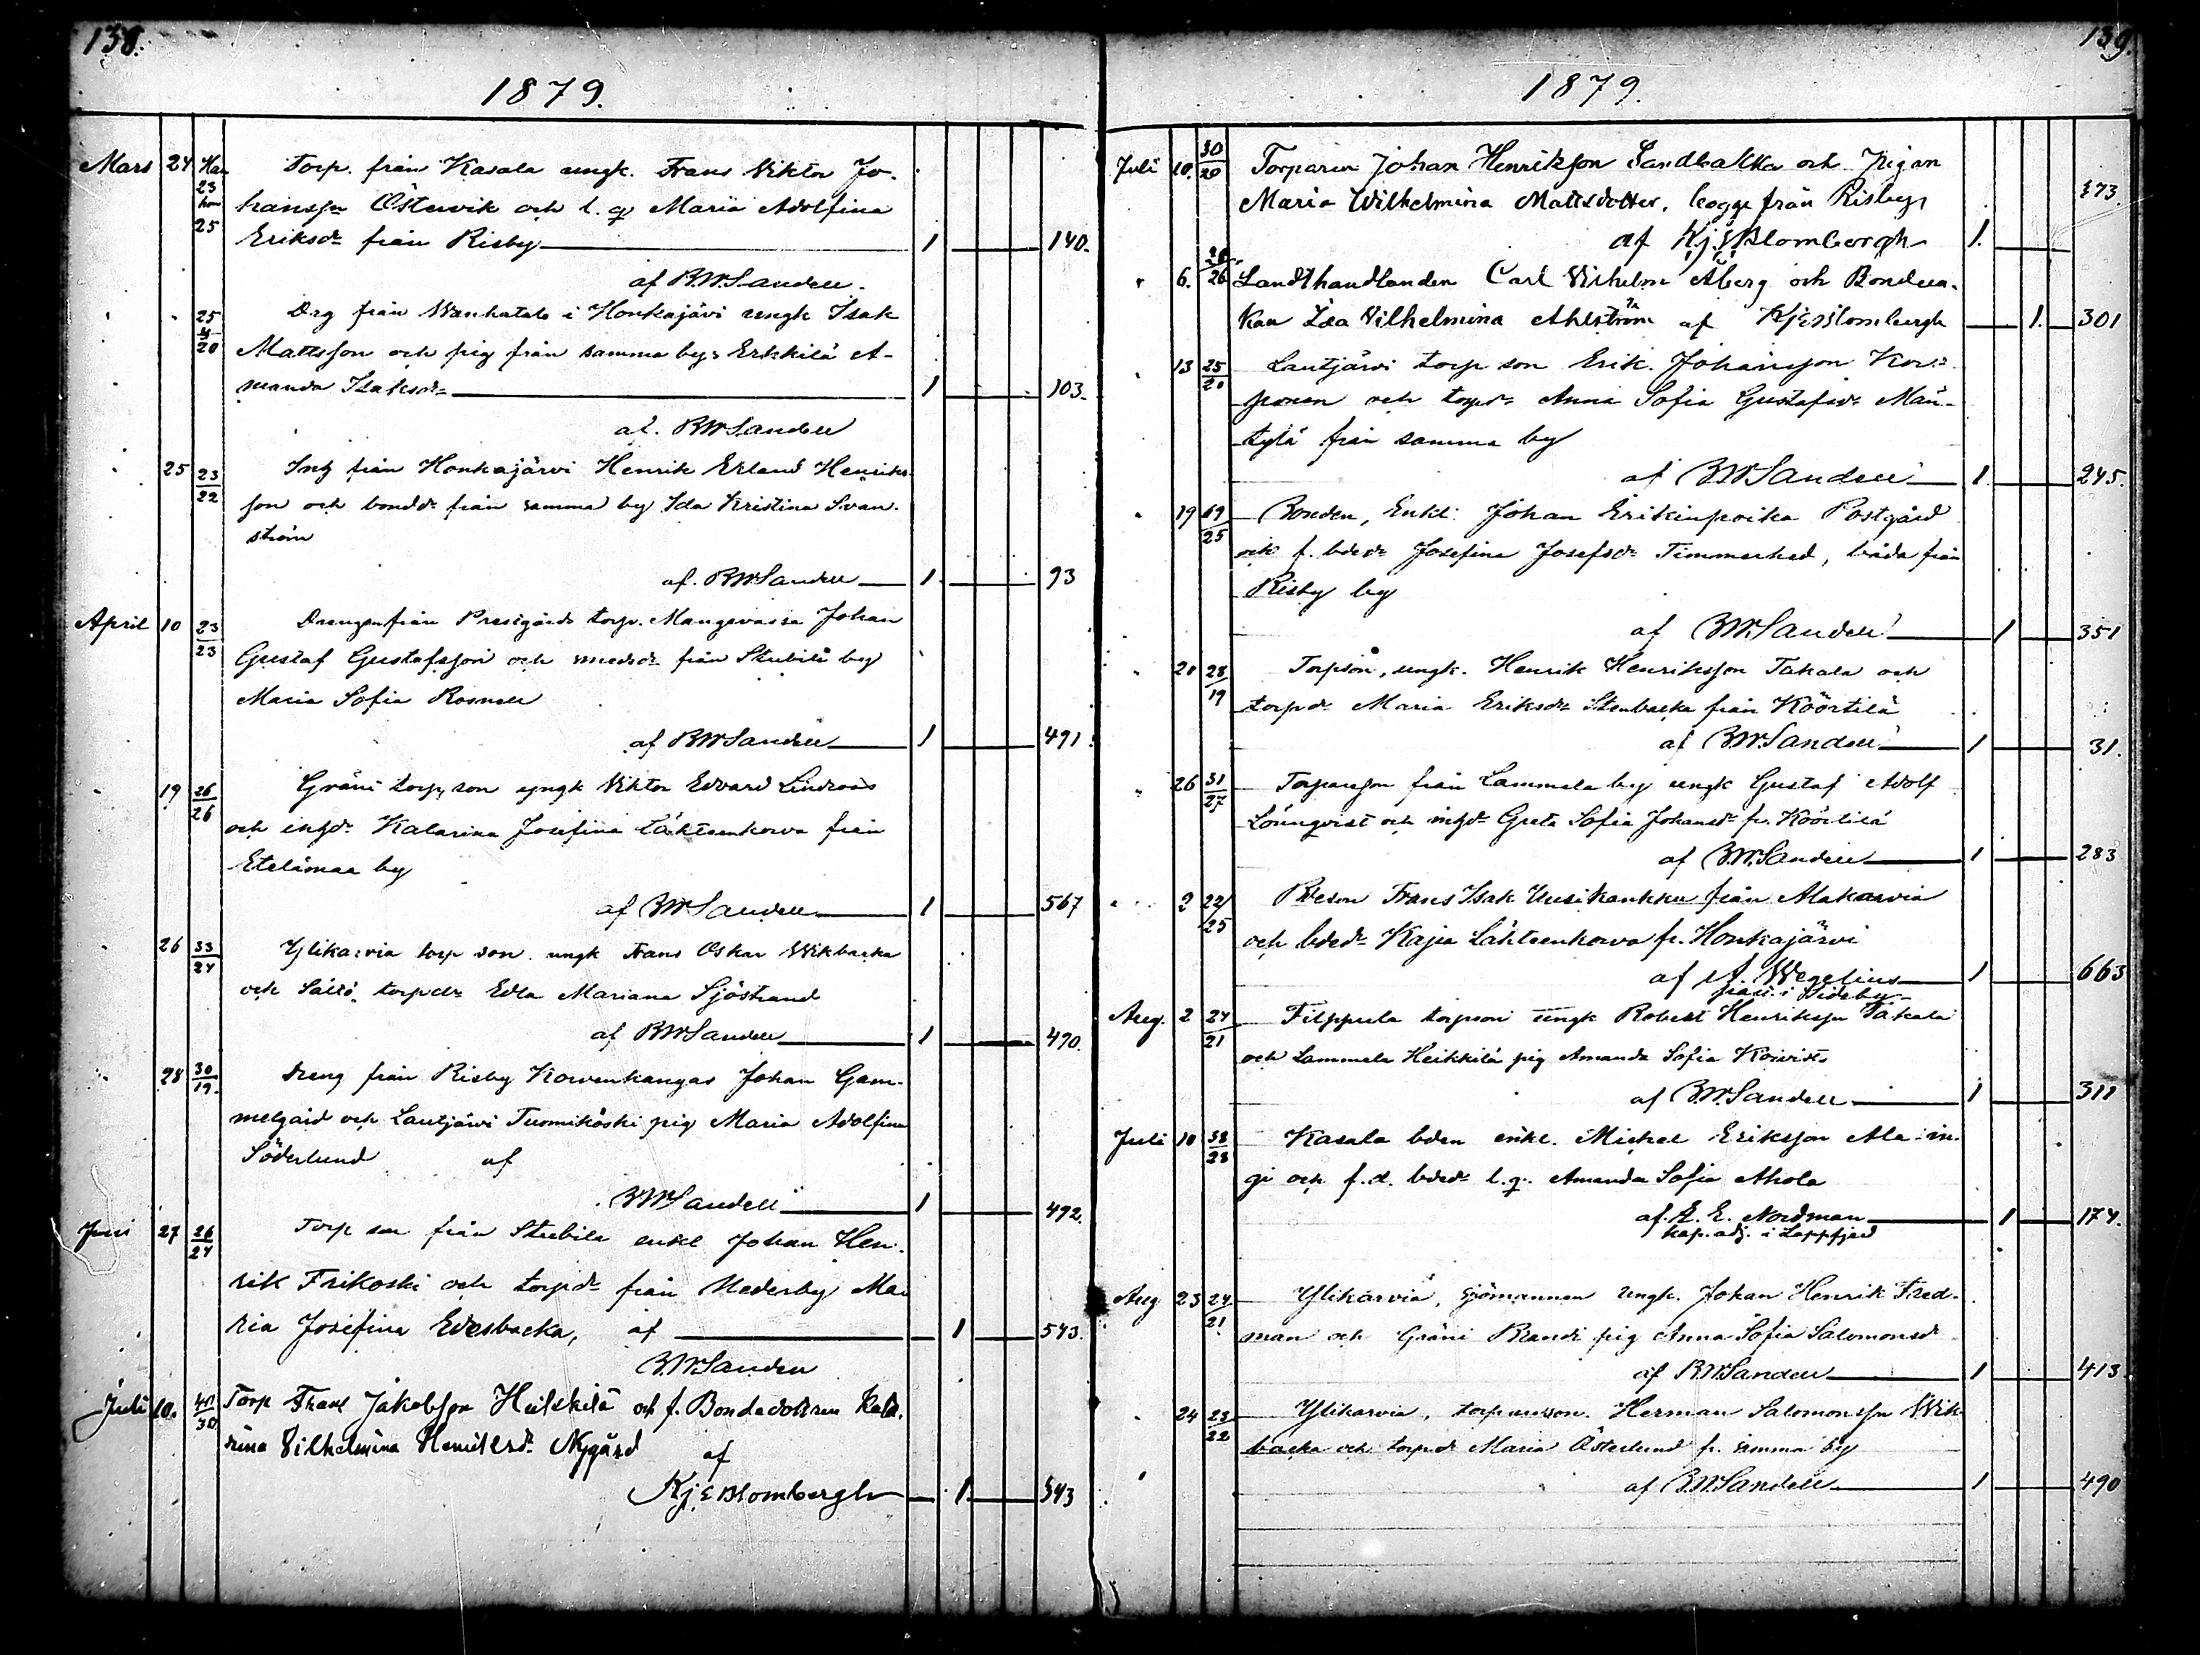 138.
1879.
Mars 24 Han 23 hon 25 Torp. från Kasala ungk. Frans Viktor Jo-
hansson Östervik och l. q Maria Adolfina
Eriksdr från Risby 1 140.
af B.W.Sandell.
25 20 Drg från Wanhatalo i Honkajärvi ungk Isak
Mattsson och pig från samma by Erkkilä A-
manda Isaksdr 1 103.
af. BWSandell
25 23/22 Inh från Honkajärvi Henrik Erland Henriks-
son och bonddr från samma by Ida Kristina Svan-
ström
af. BWSandell 1 93
April 10 23/23 Drengen från Prestgårds torp. Mangsvassa Johan
Gustaf Gustafsson och smedsdr från Stubilä by
Maria Sofia Rosnell
af BWSandell 1 491
19 26/26 Gräni torp, son yngk Viktor Edvard Lindroos
och inhdr Katarina Josefina Lähteenkorva från
Etelämaa by
af BWSandell 1 567
26 33/24 Ylikarvia torp son ungk Frans Oskar Wikbacka
och Saltö torpdr Edla Mariana Sjöstrand
af BWSandell 1 490.
28 30/19. dreng från Risby Korvenkangas Johan Gam-
melgård och Lautjärvi Tuomikoski pig Maria Adolfina
Söderlund af
BWSandell 1 492.
Juni 27 26/24 Torp son från Stubila enkl Johan Hen-
rik Frikoski och torpdr från Nederby Ma-
ria Josefina Edesbacka, af 1 543.
BWSandell
Juli 10. 30 Torp Frans Jakobsson Heikkilä och f. Bondedottren Kata-
rina Vilhelmina Henriksdr Nygård
af
Kj E Blombergh 1. 343
139.
1879.
Juli 10. 30/20 Torparen Johan Henriksson Sandbacka och Pigan
Maria Wilhelmina Mattsdotter, begge från Risby 173.
af Kj E Blombergh 1.
" 6. 28/26 Landthandlanden Carl Vilhelm Åberg och Bondeen-
kan Ida Vilhelmina Ahlström af Kj E Blombergh 1. 301
" 13 25/20 Lautjärvi torp son Erik Johansson Kor-
ponen och torpdr Anna Sofia Gustafsdr Män-
tylä från samma by
af BWSandell 1. 245.
" 19 69/25 Bonden, Enkl. Johan Erikinpoika Postgård
och f. bdedr Josefina Josefsdr Timmerhed, båda från
Risby by
af BWSandell 1 351
" 20 28/19 Torpson, ungk. Henrik Henriksson Takala och
torpdr Maria Eriksdr Stenbacka från Köörtilä
af BWSandell 1 31.
" 26 31/27 Torpareson från Lammela by ungk Gustaf Adolf
Lönnqvist och inhdr Greta Sofia Johansdr fr. Köörtilä
af BWSandell 1 283
" 2 22/25 Bdeson Frans Isak Uusikankku från Alakarvia
och bdedr Kajsa Lähteenkorva fr. Honkajärvi
af A Wegelius 1 663
i Sideby
Aug. 2 24/21 Filppula torpson ungk Robert Henriksson Takala
och Lammela Heikkilä pig Amanda Sofia Koivisto
af BWSandell 1 311
Juli 10 38/28 Kasala bden enkl. Michel Eriksson Ala-in-
gi och f.d. bdedr l. q. Amanda Sofia Ahola
af E. E. Nordman 1 174.
kap. adj. i Lappfjerd
Aug 23 24/21 Ylikarvia, sjömannen ungk. Johan Henrik Fred-
man och Gräni Brandt pig Anna Sofia Salomonsdr
af BWSandell 1 413
" 24 23/22 Ylikarvia, torpareson. Herman Salomonsson Wik-
backa och torpdr Maria Österlund fr. samma by
af BWSandell 1 490